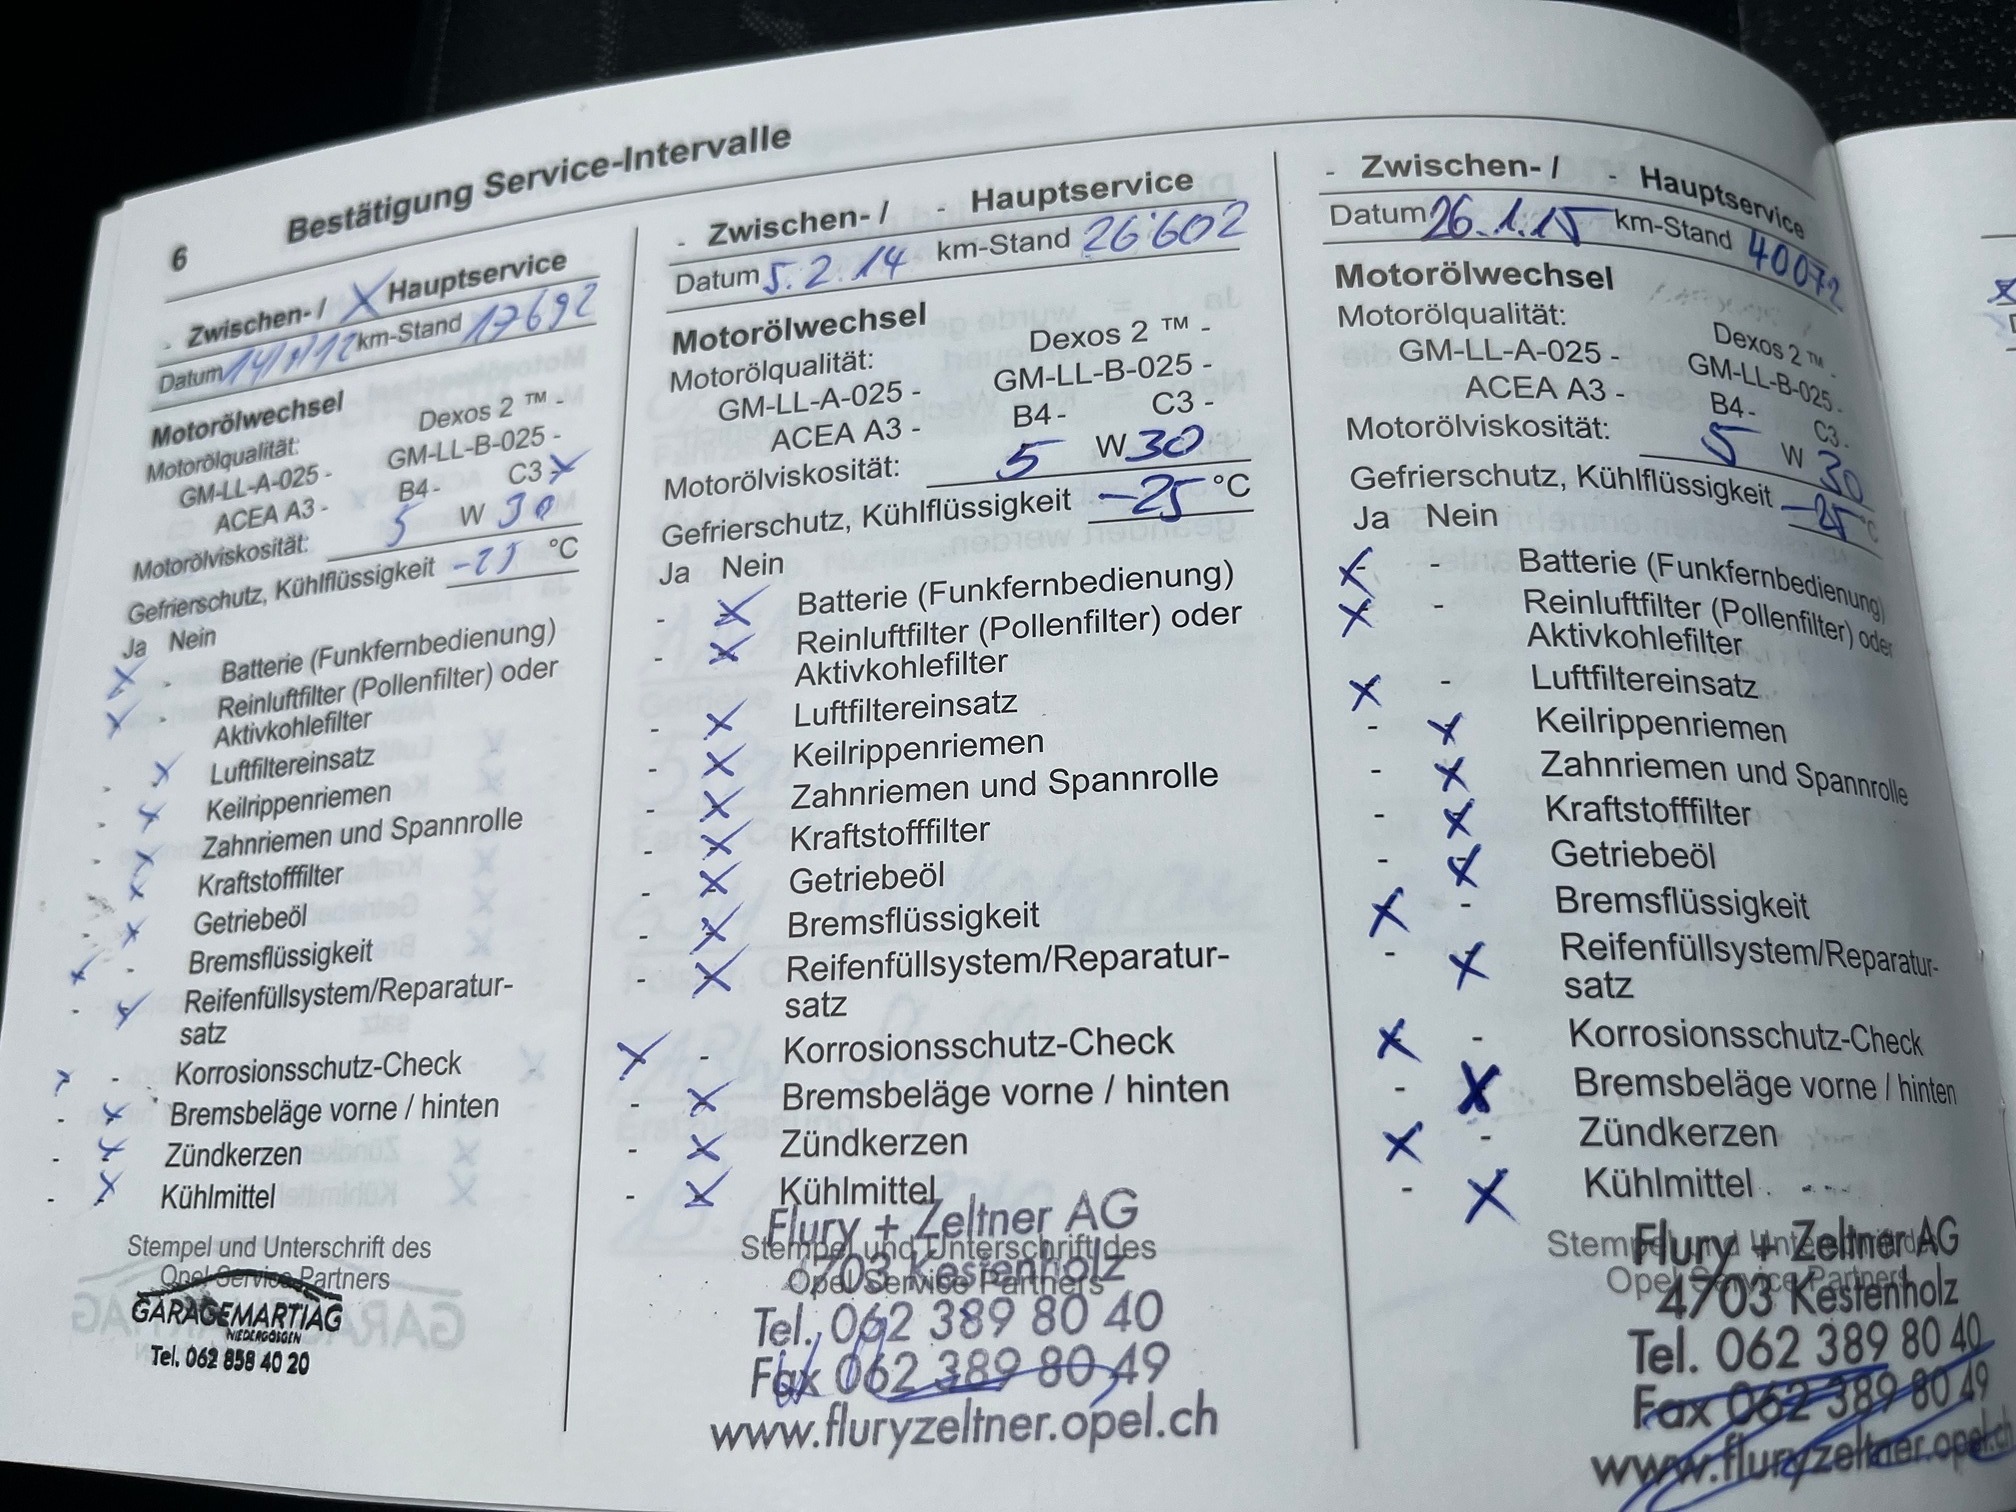 6 Bestätigung Service-Intervalle
- Zwischen- / X Hauptservice
Datum km-Stand 17692
Motorölwechsel
Motorölqualität: Dexos 2 ™ -
GM-LL-A-025 - GM-LL-B-025 -
ACEA A3 - B4 - C3 X
Motorölviskosität: 5 W 30
Gefrierschutz, Kühlflüssigkeit -25 °C
Ja Nein
X - Batterie (Funkfernbedienung)
X - Reinluftfilter (Pollenfilter) oder
Aktivkohlefilter
- X Luftfiltereinsatz
- X Keilrippenriemen
- X Zahnriemen und Spannrolle
- X Kraftstofffilter
- X Getriebeöl
X - Bremsflüssigkeit
- X Reifenfüllsystem/Reparatur-
satz
X - Korrosionsschutz-Check
- X Bremsbeläge vorne / hinten
- X Zündkerzen
- X Kühlmittel
Stempel und Unterschrift des
Opel Service Partners
GARAGE MARTI AG
NIEDERGÖSGEN
Tel. 062 858 40 20
- Zwischen- / - Hauptservice
Datum 5.2.14 km-Stand 26'602
Motorölwechsel
Motorölqualität: Dexos 2 ™ -
GM-LL-A-025 - GM-LL-B-025 -
ACEA A3 - B4 - C3 -
Motorölviskosität: 5 W 30
Gefrierschutz, Kühlflüssigkeit -25 °C
Ja Nein
- X Batterie (Funkfernbedienung)
- X Reinluftfilter (Pollenfilter) oder
Aktivkohlefilter
- X Luftfiltereinsatz
- X Keilrippenriemen
- X Zahnriemen und Spannrolle
- X Kraftstofffilter
- X Getriebeöl
- X Bremsflüssigkeit
- X Reifenfüllsystem/Reparatur-
satz
X - Korrosionsschutz-Check
- X Bremsbeläge vorne / hinten
- X Zündkerzen
- X Kühlmittel
Stempel und Unterschrift des
Opel Service Partners
Flury + Zeltner AG
4703 Kestenholz
Tel. 062 389 80 40
Fax 062 389 80 49
www.fluryzeltner.opel.ch
- Zwischen- / - Hauptservice
Datum 26.1.15 km-Stand 40072
Motorölwechsel
Motorölqualität: Dexos 2 ™ -
GM-LL-A-025 - GM-LL-B-025 -
ACEA A3 - B4 - C3 -
Motorölviskosität: 5 W 30
Gefrierschutz, Kühlflüssigkeit -25 °C
Ja Nein
X - Batterie (Funkfernbedienung)
X - Reinluftfilter (Pollenfilter) oder
Aktivkohlefilter
X - Luftfiltereinsatz
- X Keilrippenriemen
- X Zahnriemen und Spannrolle
- X Kraftstofffilter
- X Getriebeöl
X - Bremsflüssigkeit
- X Reifenfüllsystem/Reparatur-
satz
X - Korrosionsschutz-Check
- X Bremsbeläge vorne / hinten
X - Zündkerzen
- X Kühlmittel
Stempel und Unterschrift des
Opel Service Partners
Flury + Zeltner AG
4703 Kestenholz
Tel. 062 389 80 40
Fax 062 389 80 49
www.fluryzeltner.opel.ch